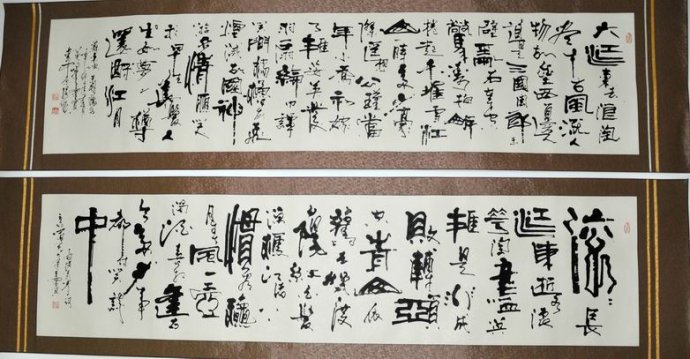 大江
東去浪淘
盡千古風流人
物故壘西邊人
道是三國周郎赤
壁亂石穿空
驚濤拍岸
捲起千堆雪江
山如畫一時多少豪
傑遙想公瑾當
年小喬初嫁
了雄姿英發
羽扇綸巾談
笑間檣櫓灰飛
煙滅故國神
遊多情應笑
我早生華髮人
生如夢一樽
還酹江月
滾滾長
江東逝水浪
花淘盡英
雄是非成
敗轉頭
空青山依
舊在幾度
夕陽紅白髮
漁樵江渚上
慣看秋
月春風一壺
濁酒喜逢
古今多少事
都付笑談
中